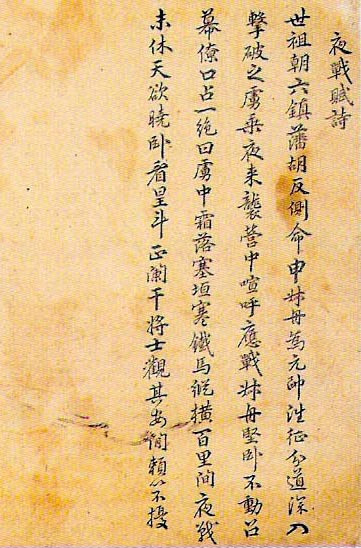 夜戰賦詩
世祖朝六鎮藩胡反側命申叔舟為元帥往征分道深入
擊破之虜乘夜来襲營中喧呼應戰叔舟堅卧不動召
幕僚口占一絶曰虜中霜落塞垣寒鐵馬縱橫百里間夜戰
未休天欲曉卧看星斗正闌干將士觀其安閒頼以不擾